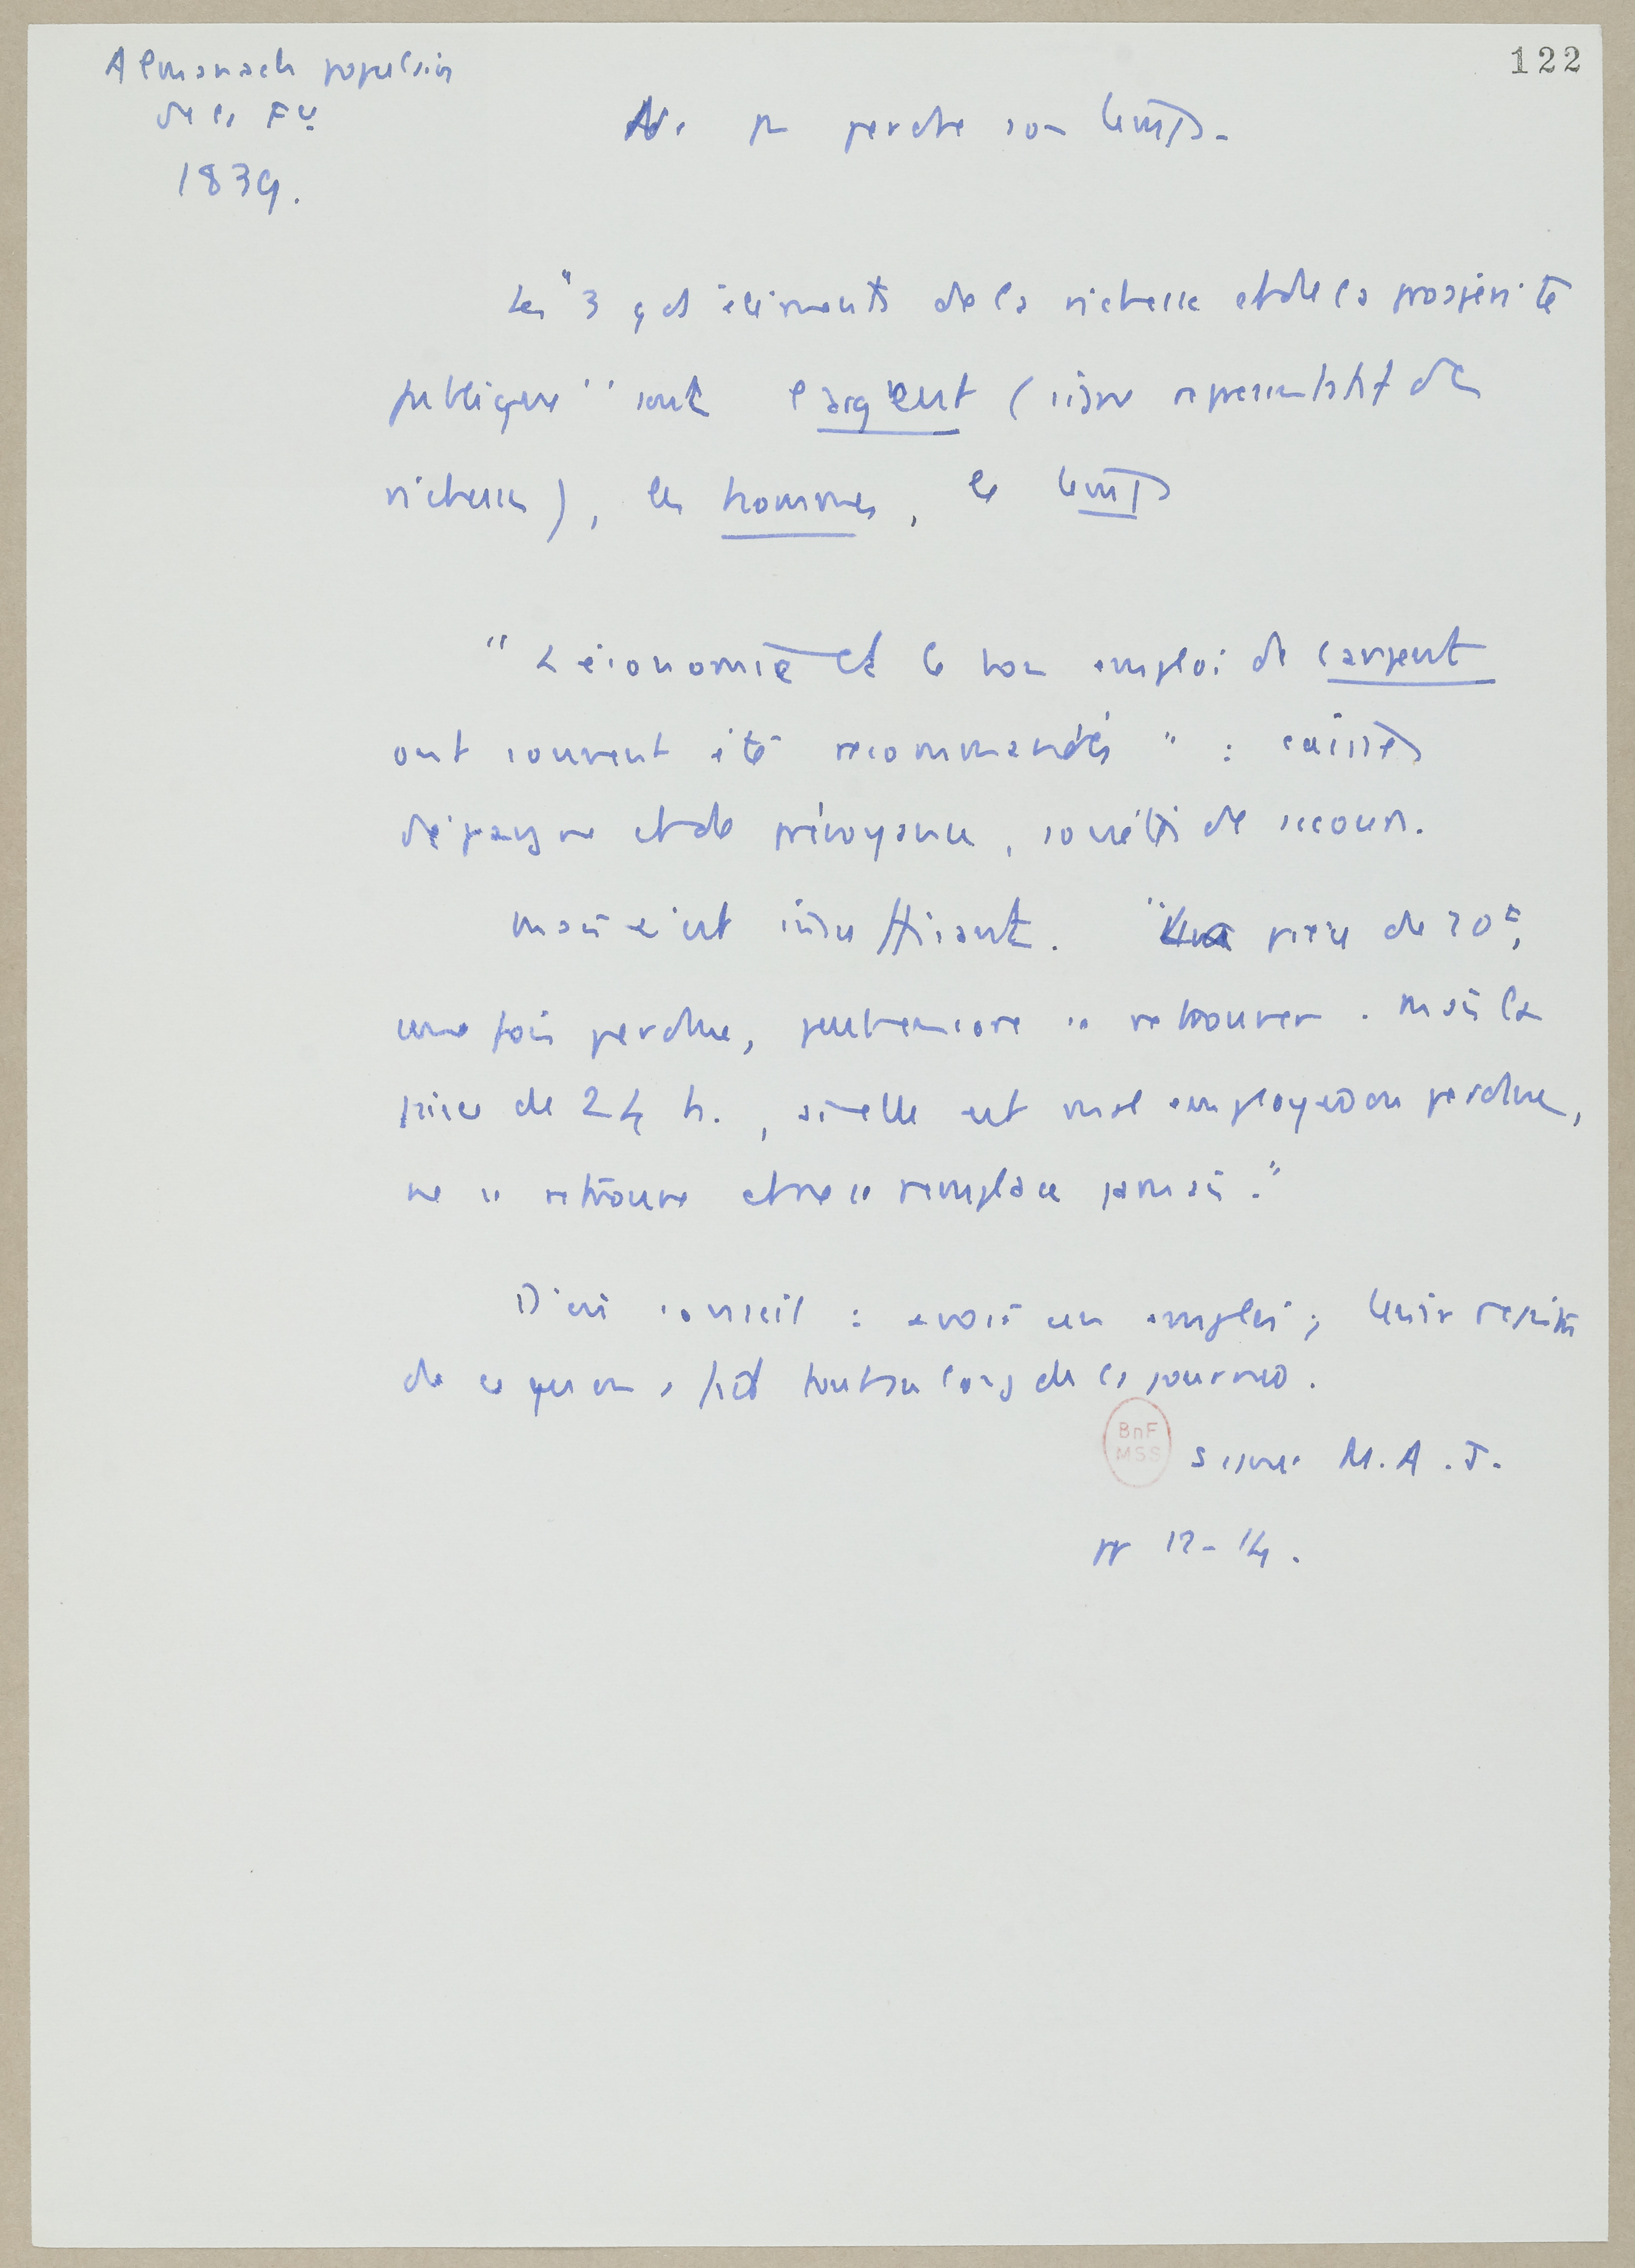 Almanach populaire
de la Fce
1839.
122
Ne pas perdre son temps.
Les "3 gds éléments de la richesse et de la prospérité
publique" sont l'argent (signe représentatif des
richesses), les hommes, le temps
"L'économie et le bon emploi de l'argent
ont souvent été recommandés" : caisses
d'épargne et de prévoyance, sociétés de secours.
Mais c'est insuffisant. "Une pièce de 20 F,
une fois perdue, peut encore se retrouver. Mais la
pièce de 24 h., si elle est mal employée ou perdue,
ne se retrouve et ne se remplace jamais."
D'où conseil : avoir un emploi ; tenir registre
de ce qu'on a fait tout au long de la journée.
BnF
MSS
Signé M.A.J.
pp 12-14.